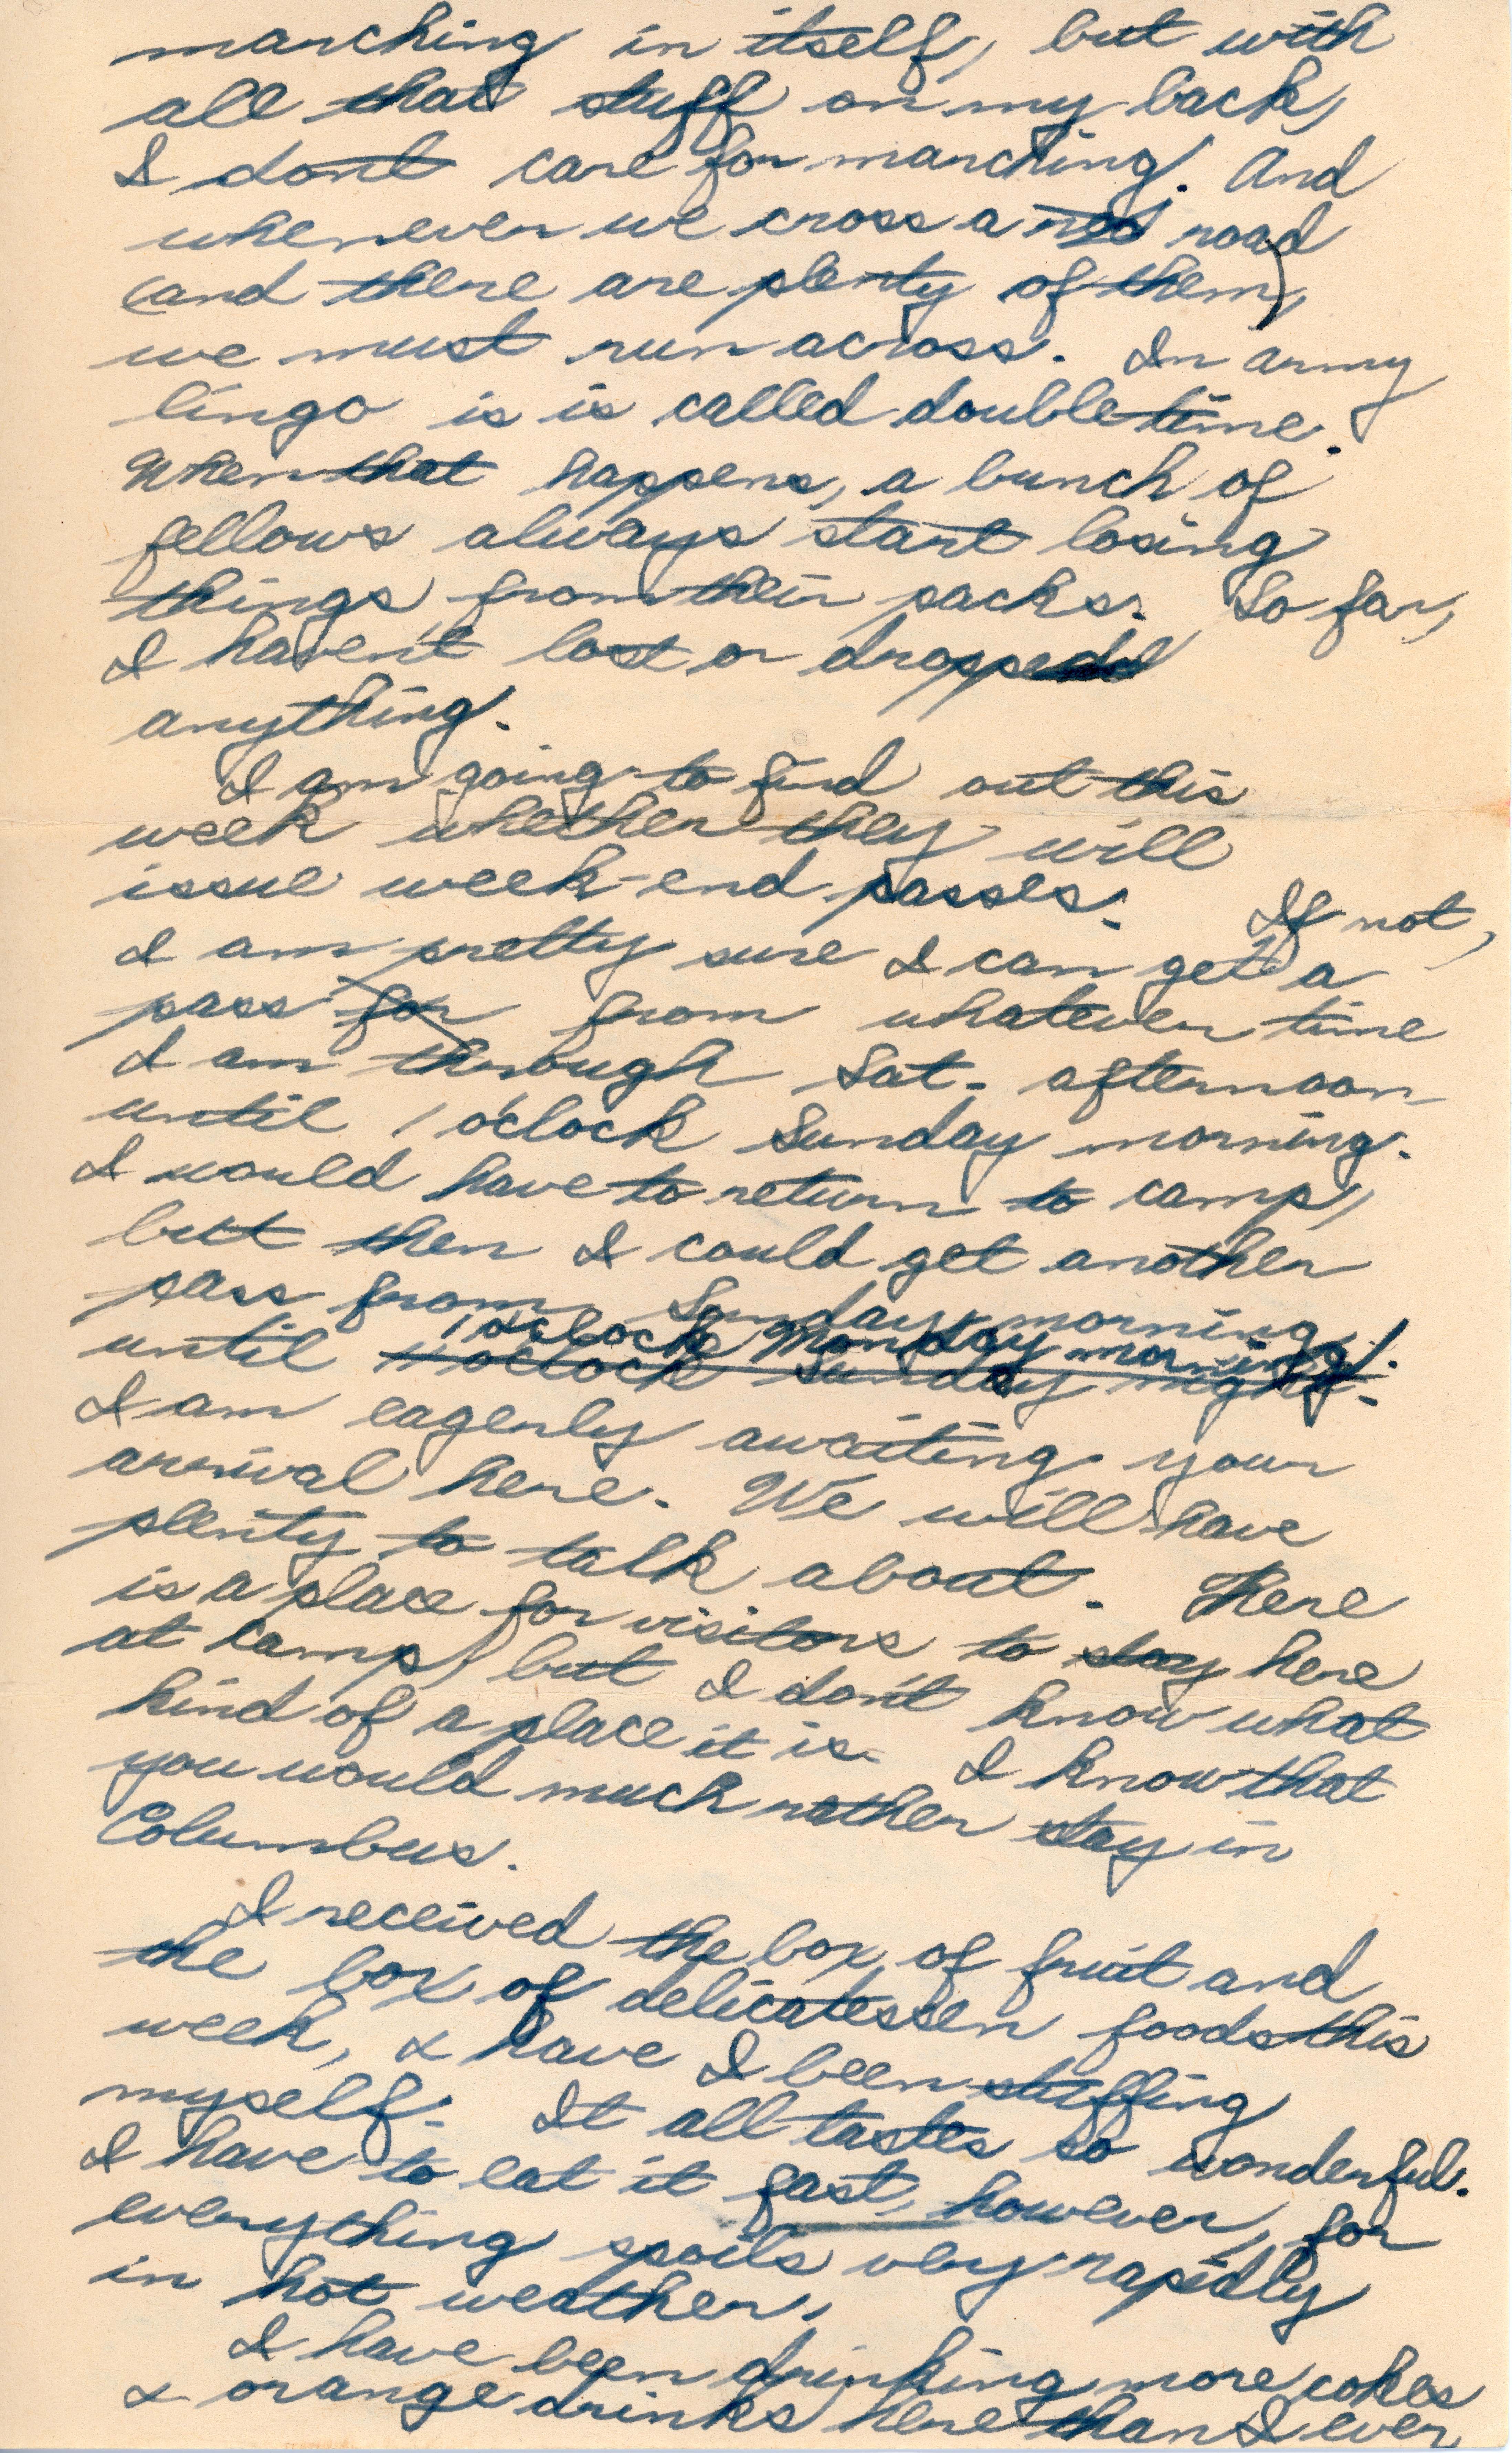 marching in itself, but with
all that stuff on my back,
I don't care for marching. And
whenever we cross a road
(and there are plenty of them),
we must run across. In army
lingo is is called double time.
When that happens, a bunch of
fellows always start losing
things from their packs. So far,
I haven't lost or dropped
anything.
I am going to find out this
week whether they will
issue week-end passes. If not,
I am pretty sure I can get a
pass for from whatever time
I am through Sat. afternoon
until 1 o'clock Sunday morning.
I would have to return to camp,
but then I could get another
pass from Sunday morning
1 o'clock Monday morning!
until 11 o'clock Sunday night.
I am eagerly awaiting your
arrival here. We will have
plenty to talk about. There
is a place for visitors to stay here
at camp, but I don't know what
kind of a place it is. I know that
you would much rather stay in
Columbus.
I received the box of fruit and
the box of delicatessen foods this
week, & have I been stuffing
myself. It all tastes so wonderful.
I have to eat it fast, however, for
everything spoils very rapidly
in hot weather.
I have been drinking more cokes
& orange drinks here than I ever